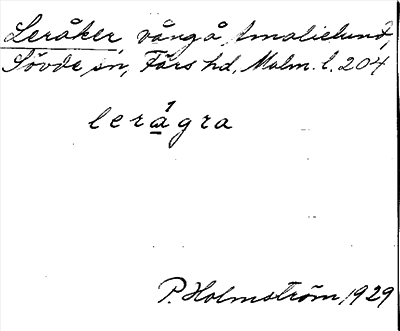 Leråker, vång å Amalielund,
Sövde sn, Färs hd, Malm. l. 204
lerágra
P. Holmström, 1929